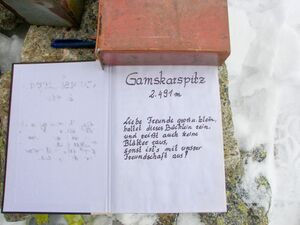 Gamskarspitz
2.491 m
Liebe Freunde gross u. klein,
haltet dieses Büchlein rein,
und reißt auch keine
Blätter raus,
sonst ist's mit unsrer
Freundschaft aus!